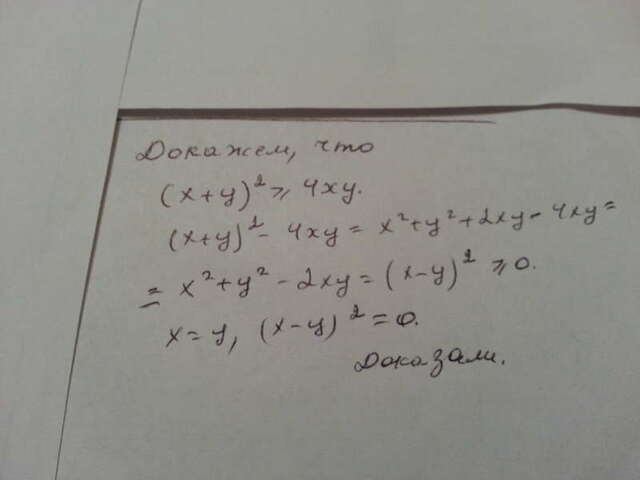 Докажем, что
(x+y)² ⩾ 4xy.
(x+y)² - 4xy = x²+y²+2xy-4xy=
= x²+y² - 2xy = (x-y)² ⩾ 0.
x=y, (x-y)² = 0.
Доказали.